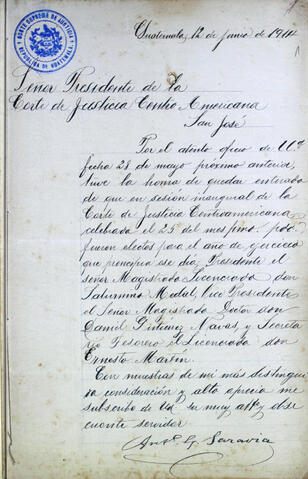 CORTE SUPREMA DE JUSTICIA
REPUBLICA DE GUATEMALA
Guatemala, 12 de junio de 1914
Señor Presidente de la
Corte de Justicia Centro Americana
San José
Por el atento oficio de Ud.
fecha 28 de mayo próximo anterior
tuve la honra de quedar enterado
de que en sesión inaugural de la
Corte de Justicia Centroamericana
celebrada el 25 del mes ppmo.
fueron electos para el año de
que principia ese día, Presidente el
señor Magistrado Licenciado don
Saturnino Medal, Vice Presidente
el Señor Magistrado Doctor don
Daniel Gutiérrez Navas, y Secreta
rio Tesorero el Licenciado don
Ernesto Martin.
Con muestras de mi más distingui
da consideración y alto aprecio me
subscribo de Ud. su muy atto y obse
cuente servidor
Anto. G. Saravia